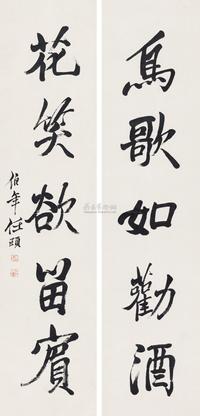 鳥歌如勸酒
花笑欲留賓
伯年任頤